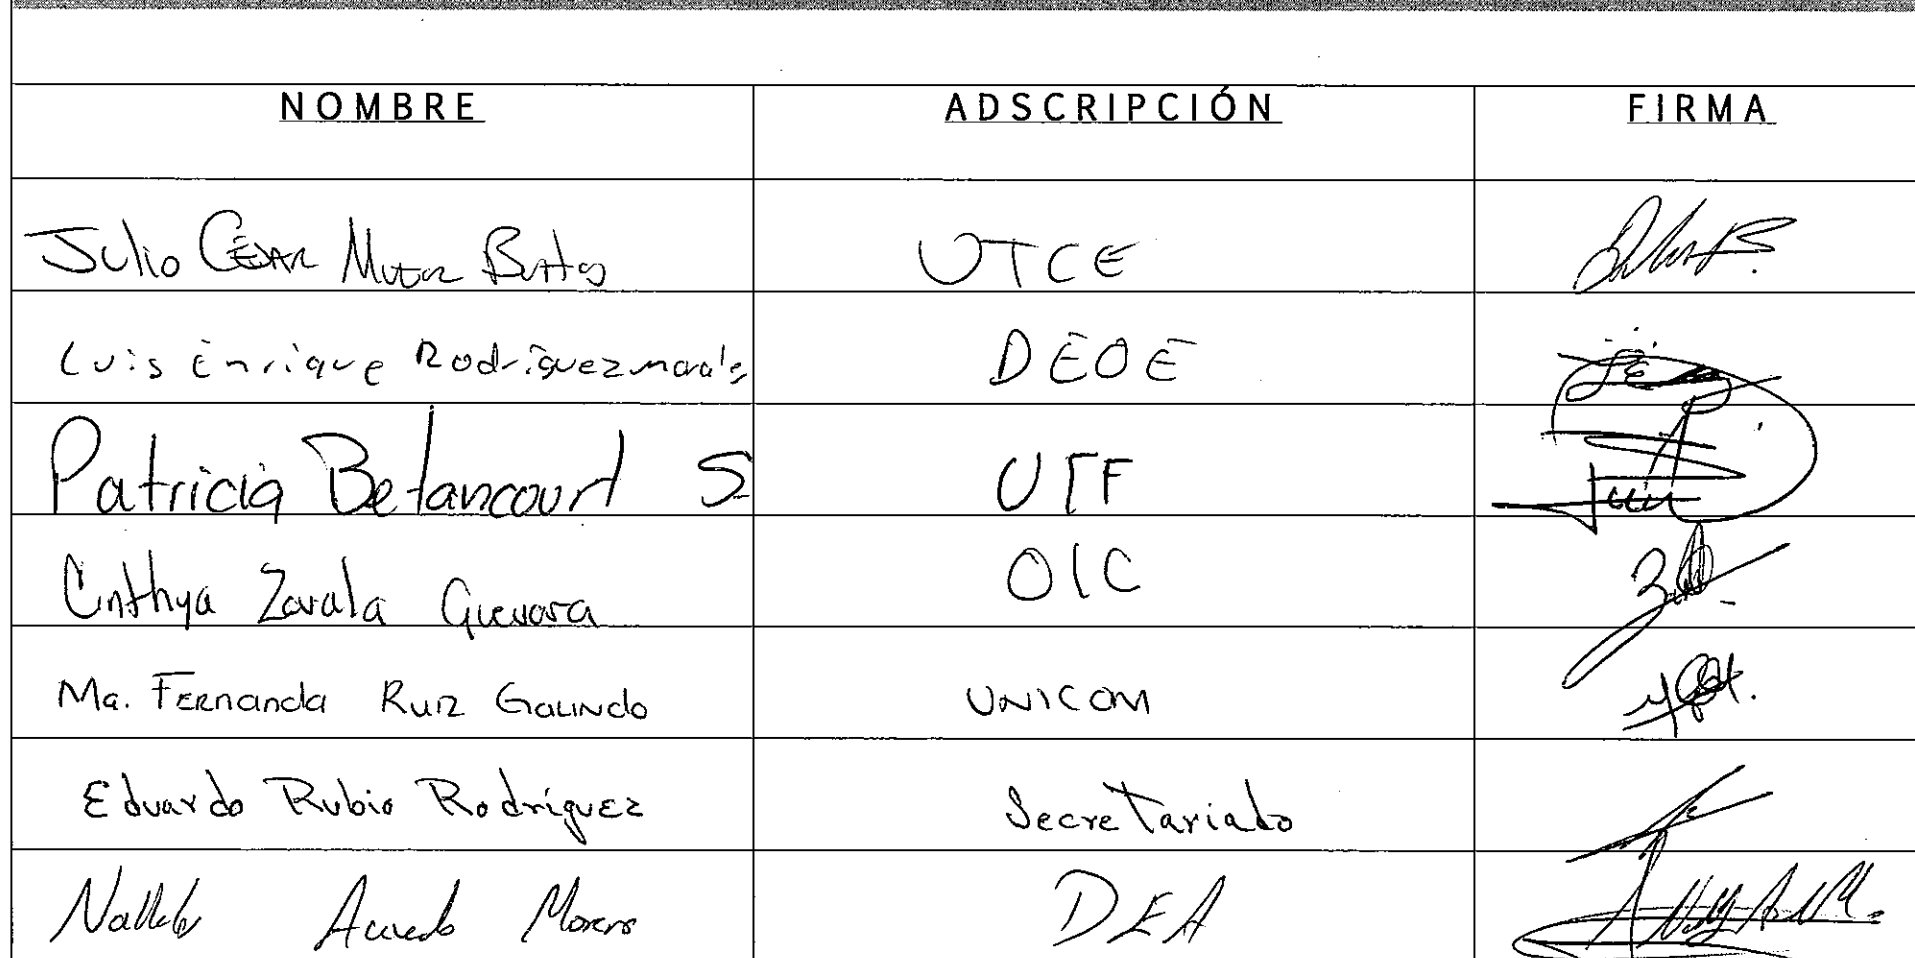 NOMBRE ADSCRIPCIÓN FIRMA
Julio CÉSAR UTCE
Luis Enrique Rodríguez morales DEOE
Patricia Betancourt S UTF
Cinthya Zavala Guevara OIC
Ma. Fernanda Ruiz Galindo UNICOM
Eduardo Rubio Rodríguez Secretariado
Moreno DEA